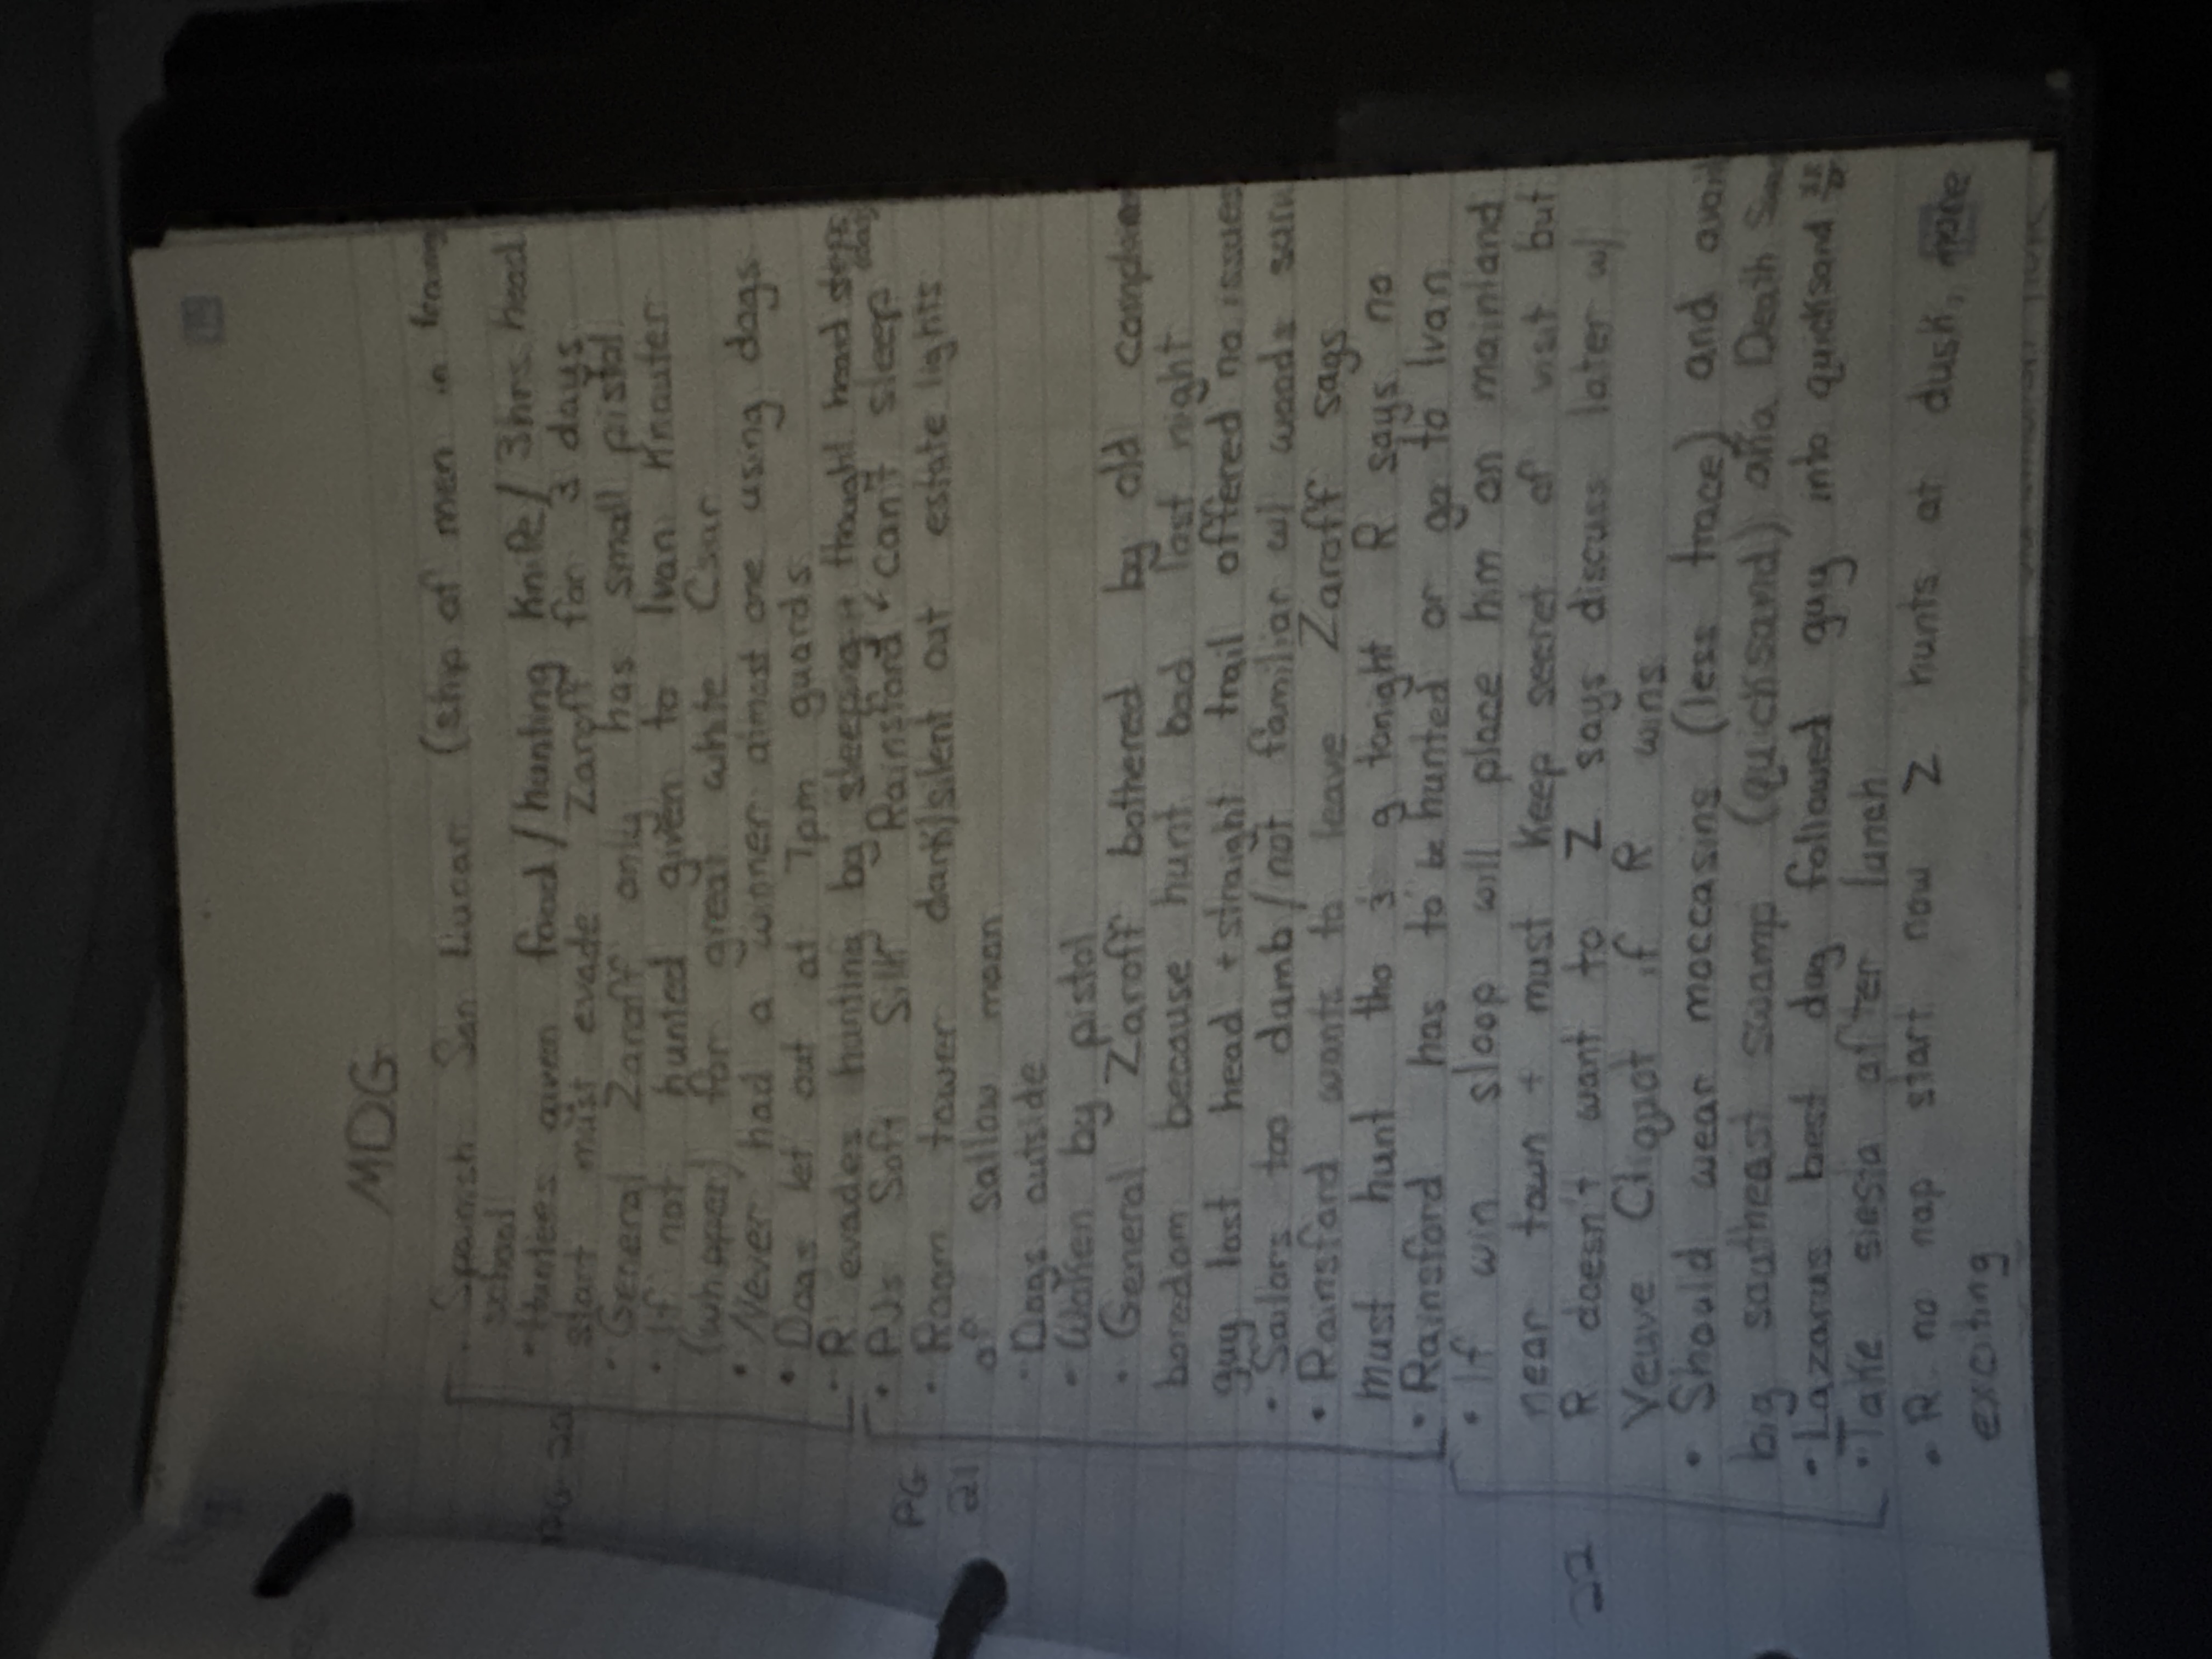 MDG
• Spanish San Lucar (ship of men in training
school
• Huntees given food/hunting knife/3hrs head
start must evade Zaroff for 3 days
• General Zaroff only has small pistol
• If not hunted given to Ivan Knouter
(whipper) for great white Csar
• Never had a winner almost one using dogs
• Dogs let out at 7pm guards
• R evades hunting by sleeping + thought heard steps
• PJs Soft Silk Rainsford can't sleep
• Room tower dark/silent out estate lights
of sallow moon
• Dogs outside
• Woken by pistol
• General Zaroff bothered by old complaint
boredom because hunt bad last night
guy lost head + straight trail offered no issues
• Sailors too dumb/not familiar w/ woods
• Rainsford wants to leave Zaroff says
must hunt tho 3 g tonight R says no
• Rainsford has to be hunted or go to Ivan
• If win sloop will place him on mainland
near town + must keep secret of visit but
R doesn't want to Z says discuss later w/
Veuve Cliquot if R wins
• Should wear moccasins (less trace) and avoid
big southeast swamp (quicksand) Death
• Lazarus best dog followed guy into quicksand
• Take siesta after lunch
• R no nap start now Z hunts at dusk, more
exciting
PG 20
PG
21
22